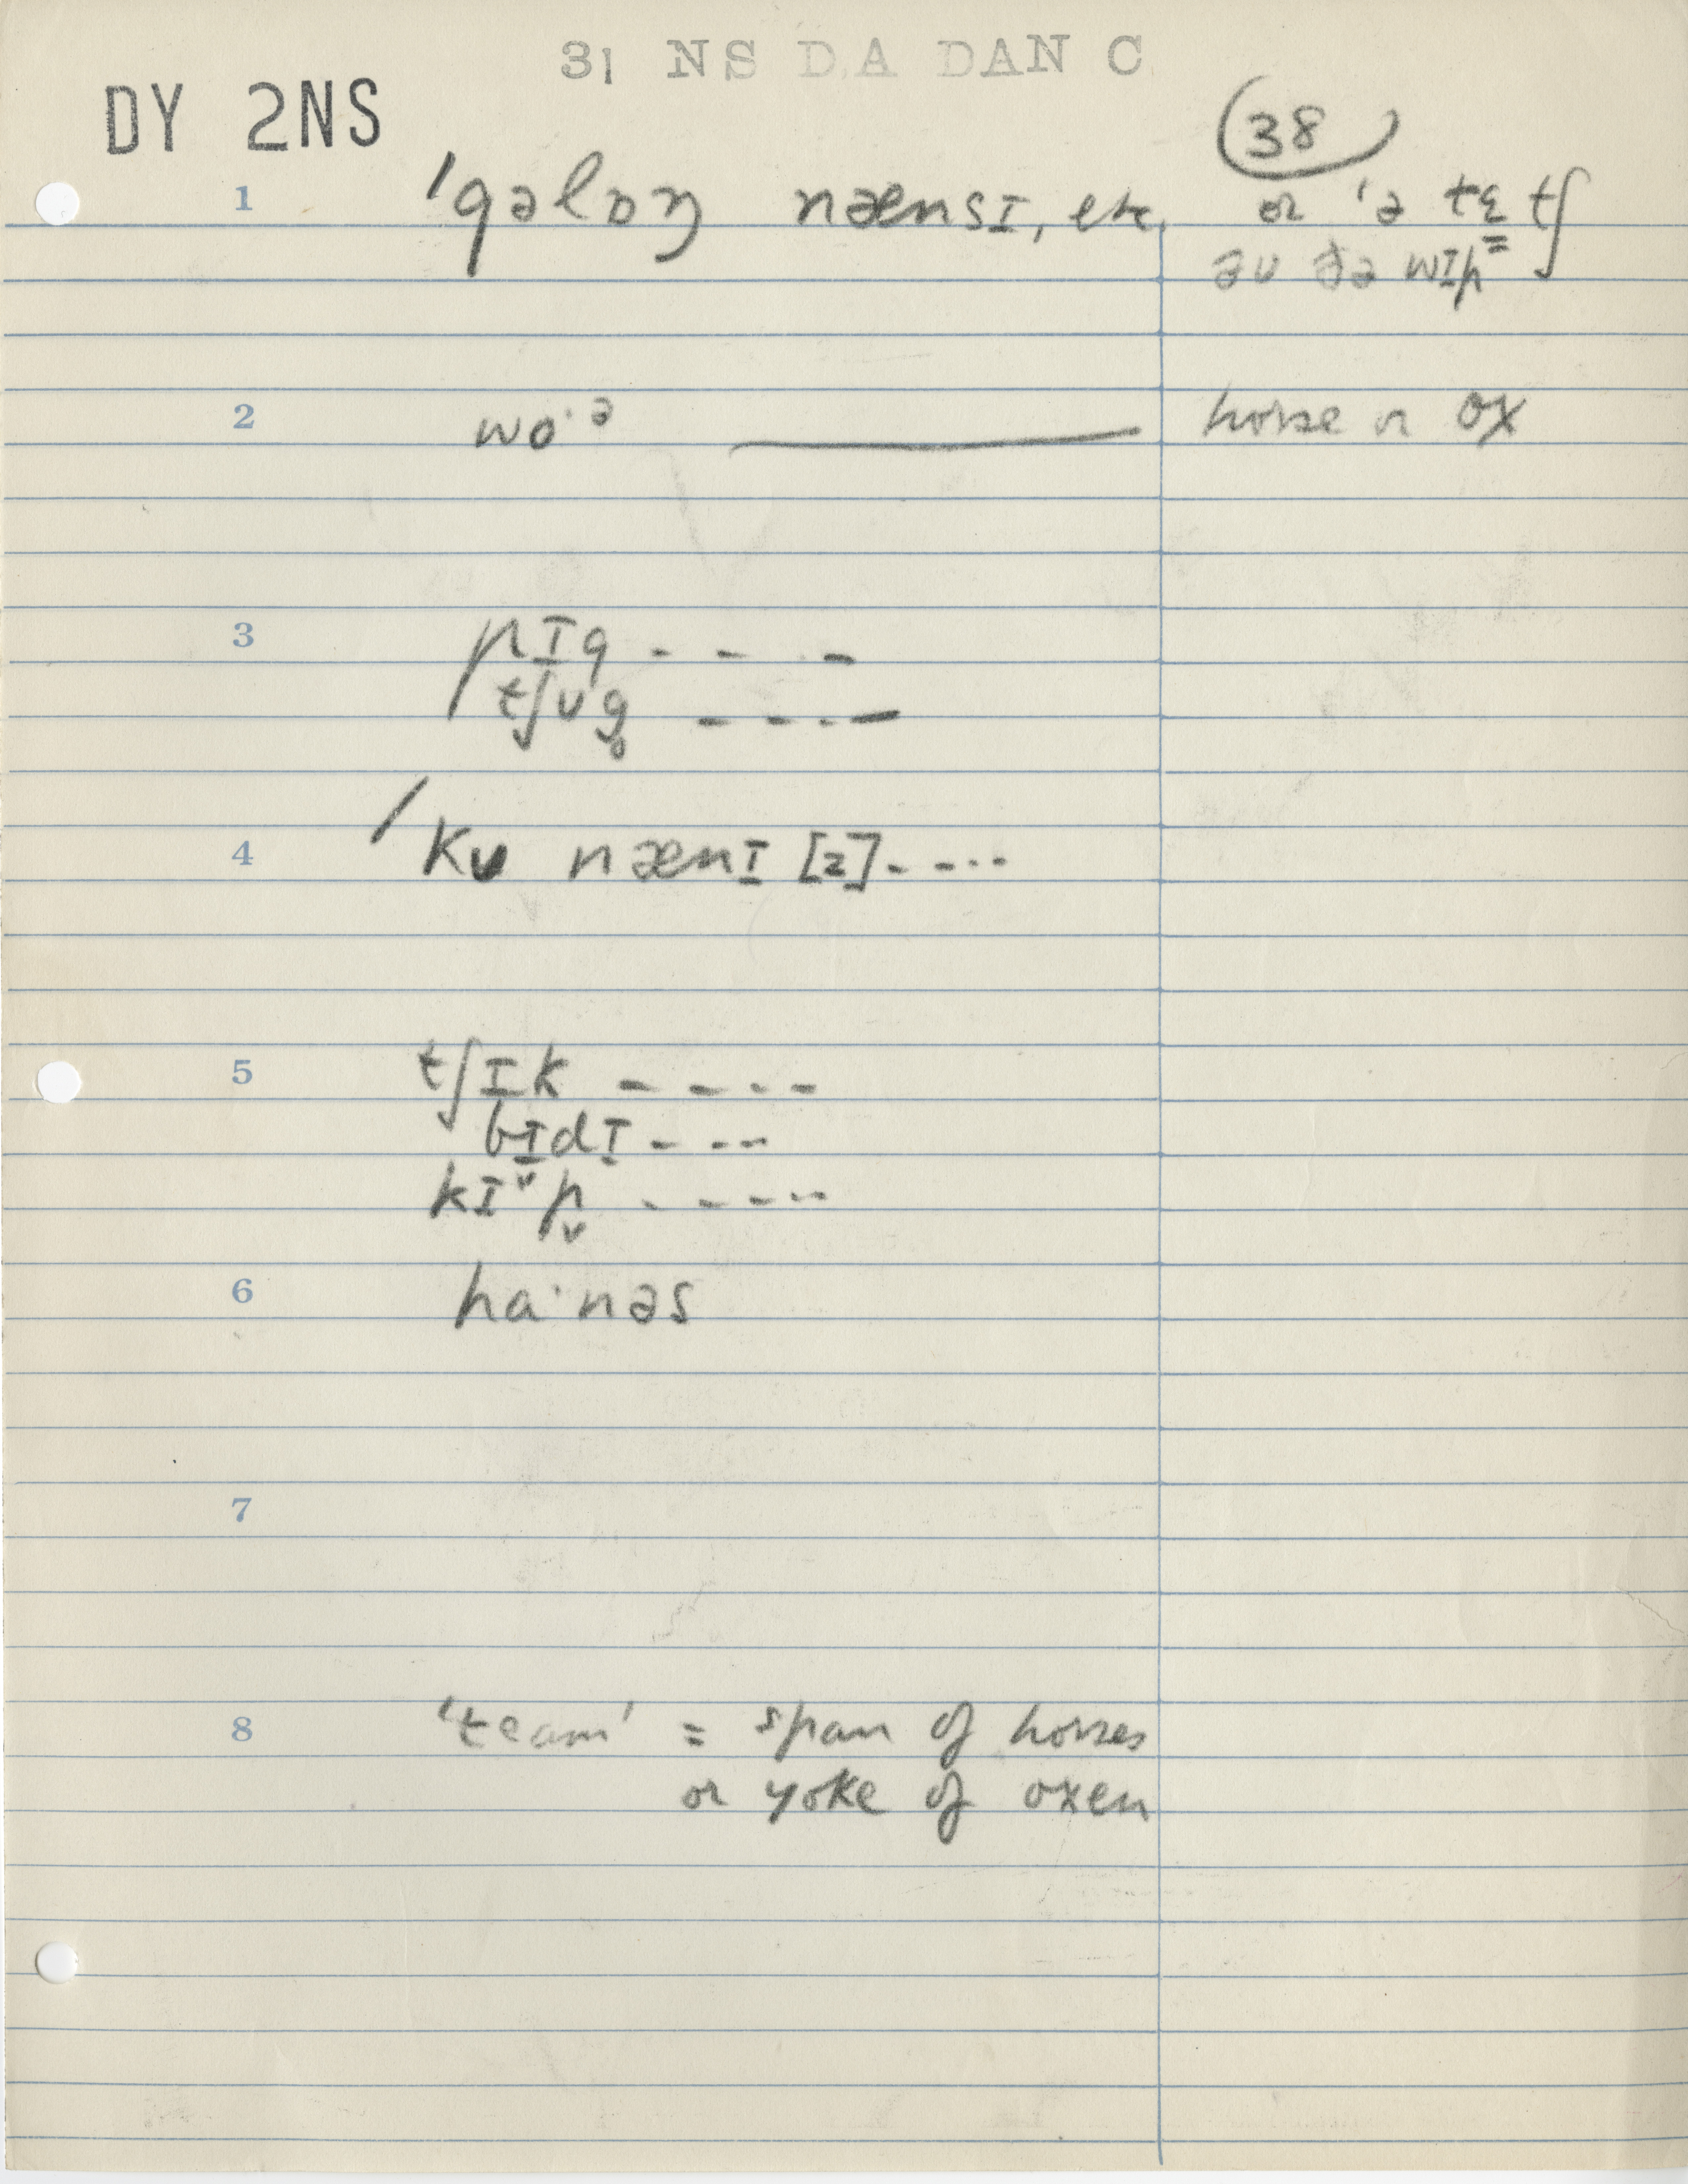 31 NS D.A DAN C
DY 2NS
38
1 ˈgəlɒŋ nænsɪ, etc. or ˈə tɛ tʃ
əv ðə wɪp⁼
2 wo·ə —— horse or ox
3 pɪg - - -
tʃʊg̥ - - - -
4 ˈkʊ nænɪ [2] - - - -
5 tʃɪk - - - -
bɪdɪ - - -
kɪᵛp̬ - - - -
6 ha·nəs
7
8 'team' = span of horses
or yoke of oxen